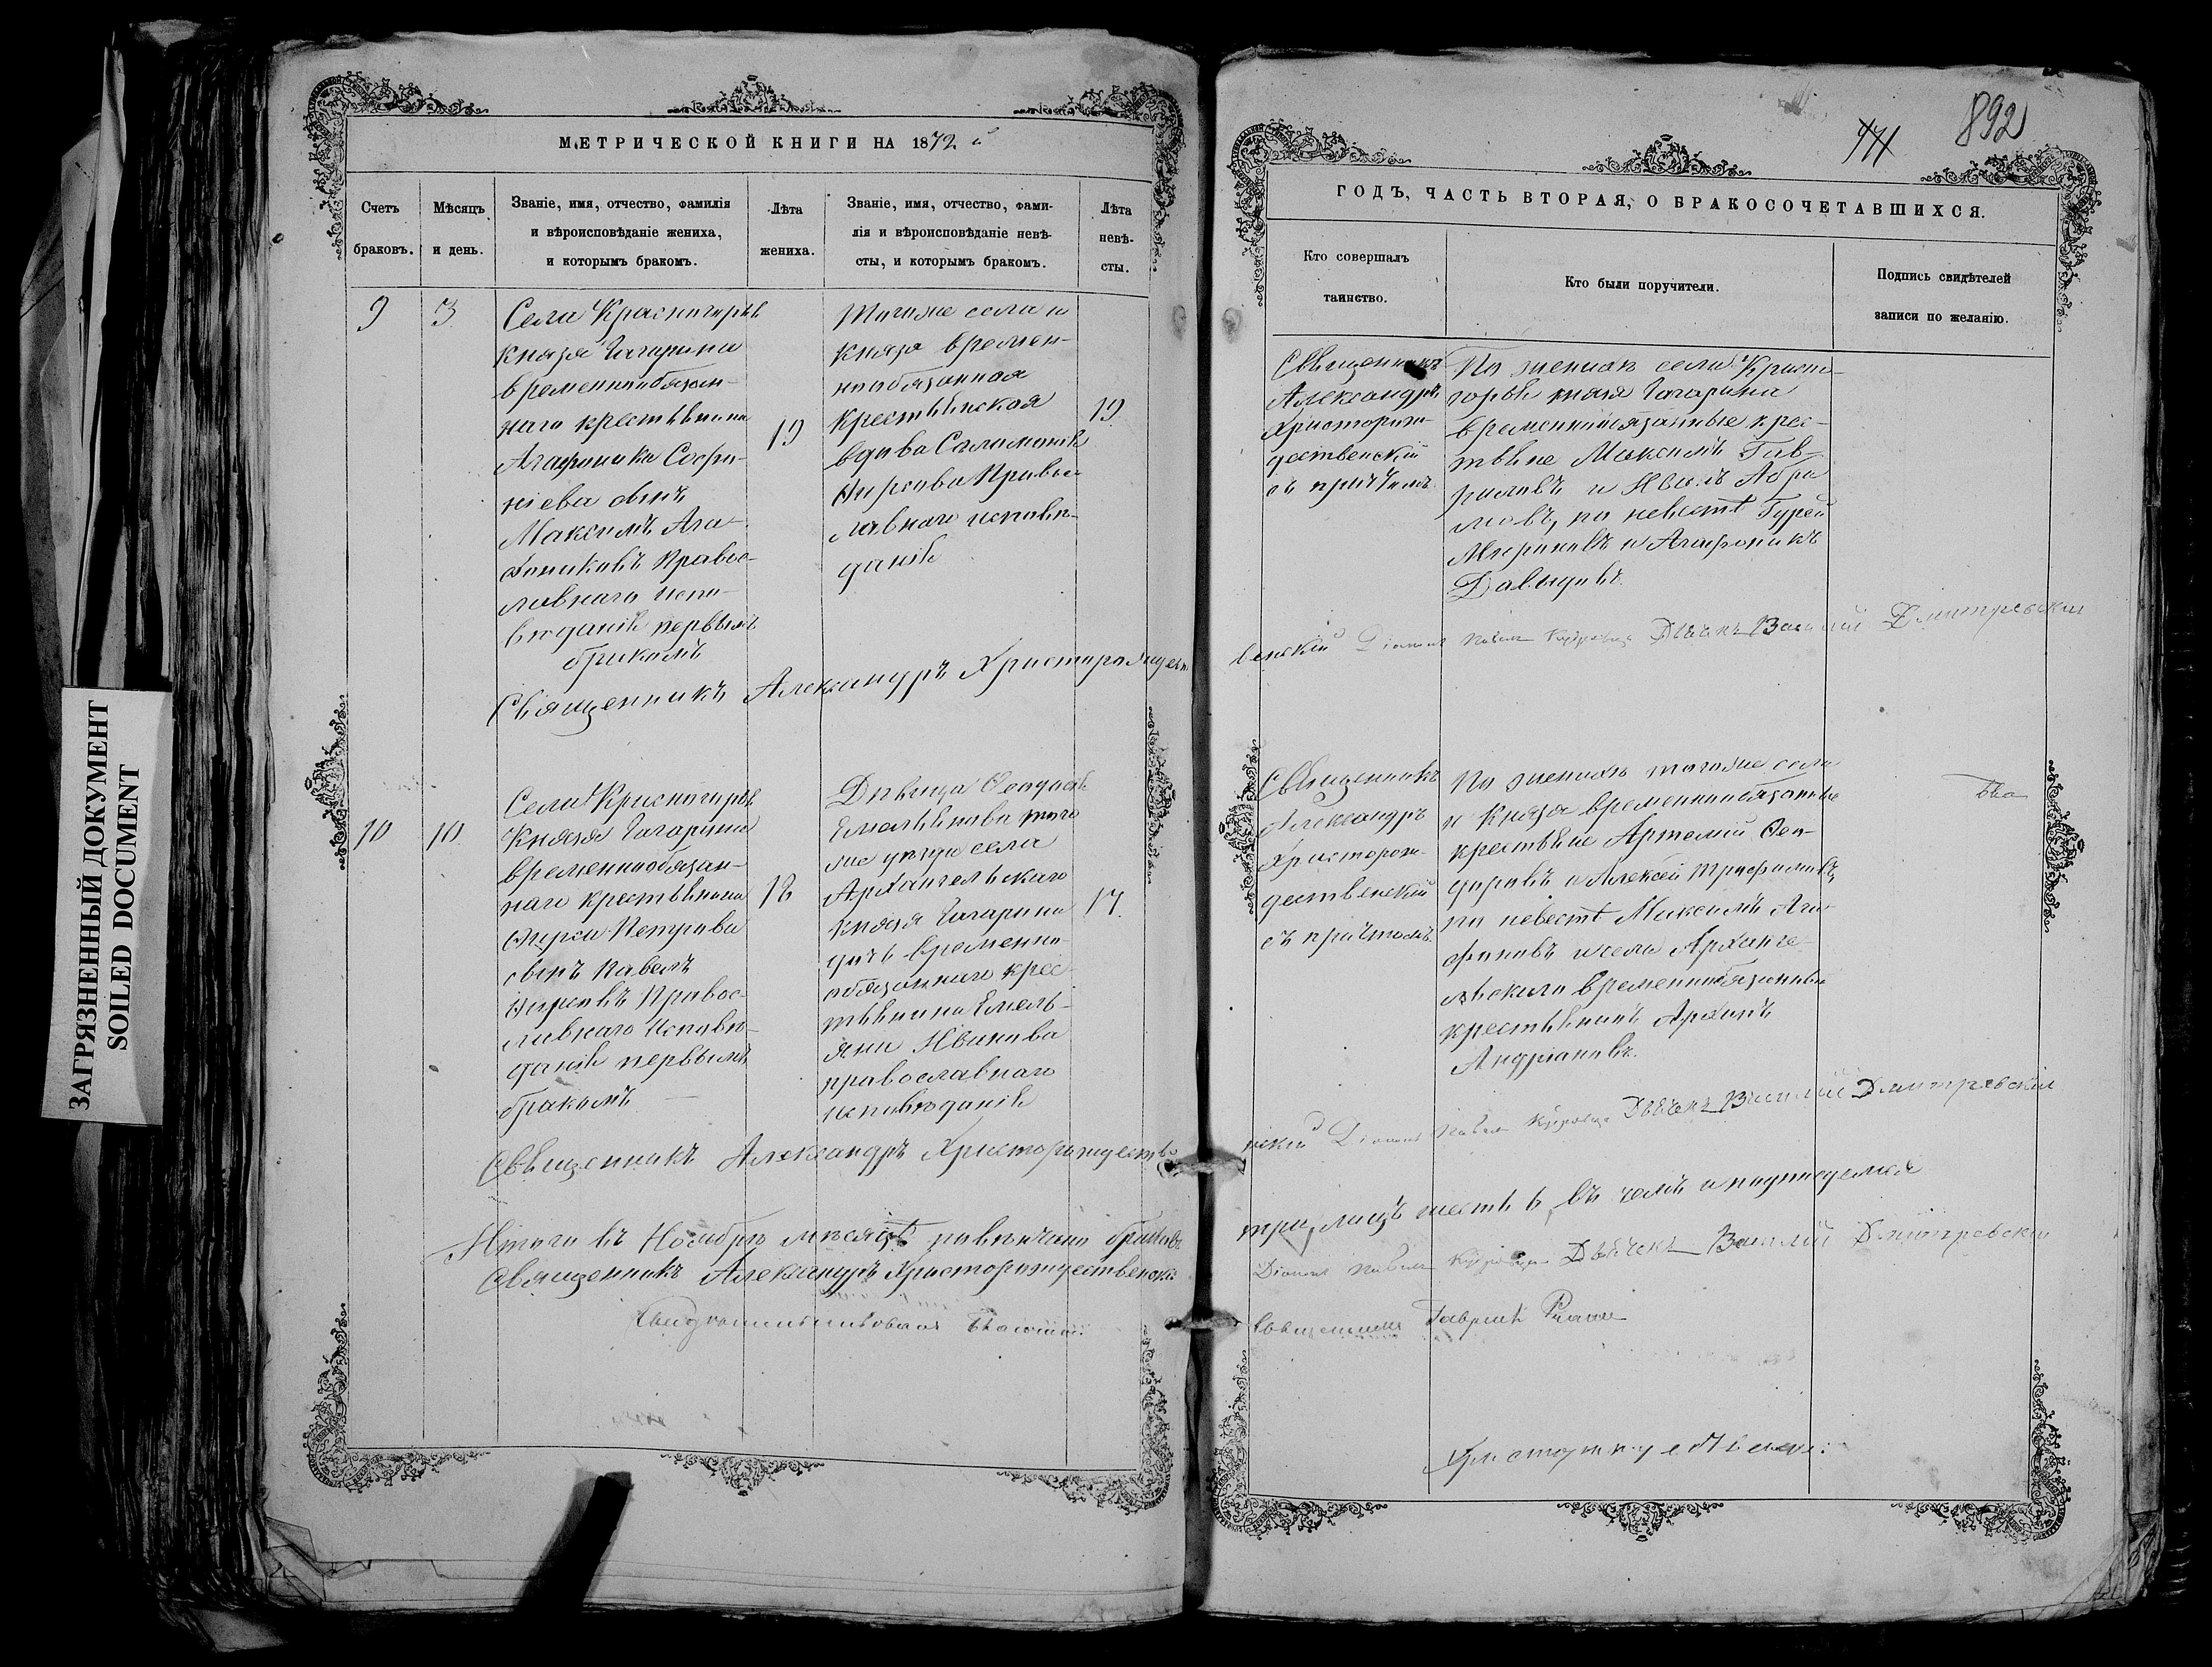 ЗАГРЯЗНЕННЫЙ ДОКУМЕНТ
SOILED DOCUMENT
МЕТРИЧЕСКОЙ КНИГИ НА 1872 й
Счетъ браковъ.
Мѣсяцъ и день.
Званіе, имя, отчество, фамилія
и вѣроисповѣданіе жениха,
и которымъ бракомъ.
Лѣта жениха.
Званіе, имя, отчество, фами-
лія и вѣроисповѣданіе невѣ-
сты, и которымъ бракомъ.
Лѣта невѣ-
сты.
9
3
Села Красногорья
Князя Гагарина
временнообязан-
наго крестьянина
Агафоника Софро-
ніева сынъ
Максимъ Ага-
фониковъ Правос-
лавнаго испо-
вѣданія первымъ
бракомъ
19
Тогоже села и
князя времен-
нообязанная
крестьянская
вдова Саломонія
Фирсова Правос-
лавнаго исповѣ-
данія
19
Священникъ Александръ Христорождест
10
10
Села Красногорья
Князя Гагарина
временнообязан-
наго крестьянина
Фирса Петрова
сынъ Павелъ
Фирсовъ Правос-
лавнаго исповѣ-
данія первымъ
бракомъ
18
Дѣвица Ѳеодосія
Емельянова того
же уѣзда села
Архангельскаго
князя Гагарина
дочь временно-
обязаннаго крес-
тьянина Емель-
яна Иванова
православнаго
исповѣданія
17
Священникъ Александръ Христорождеств
Итого въ Ноябрѣ мѣсяцѣ повѣнчано браковъ
Священникъ Александръ Христорождественскі
892
ГОДЪ, ЧАСТЬ ВТОРАЯ, О БРАКОСОЧЕТАВШИХСЯ.
Кто совершалъ
таинство.
Кто были поручители.
Подпись свидѣтелей
записи по желанію.
Священникъ
Александръ
Христорож-
дественскій
съ причтомъ
По женихѣ села Красно-
горья князя Гагарина
временнообязанные крес-
тьяне Максимъ Гав-
риловъ и Абра
мовъ, по невестѣ Гурей
Мироновъ и Агафоникъ
Давыдовъ
венскій Діаконъ Павелъ Дьячекъ Василій Дмитревскій
Священникъ
Александръ
Христорож-
дественскій
съ причтомъ
По женихѣ тогоже села
и Князя временнообязанные
крестьяне Артемій Ѳео-
доровъ и Алексей Трофимовъ,
по невестѣ Максимъ Ага-
фоновъ и села Арханге-
льскаго временнообязанный
крестьянинъ Архипъ
Андріановъ.
нскій Діаконъ Павелъ Дьячекъ Василій Дмитревскій
три, лицъ шесть 6, въ чемъ и подписуемся
Діаконъ Павелъ Дьячекъ Василій Дмитревскій
Священникъ Гавріилъ